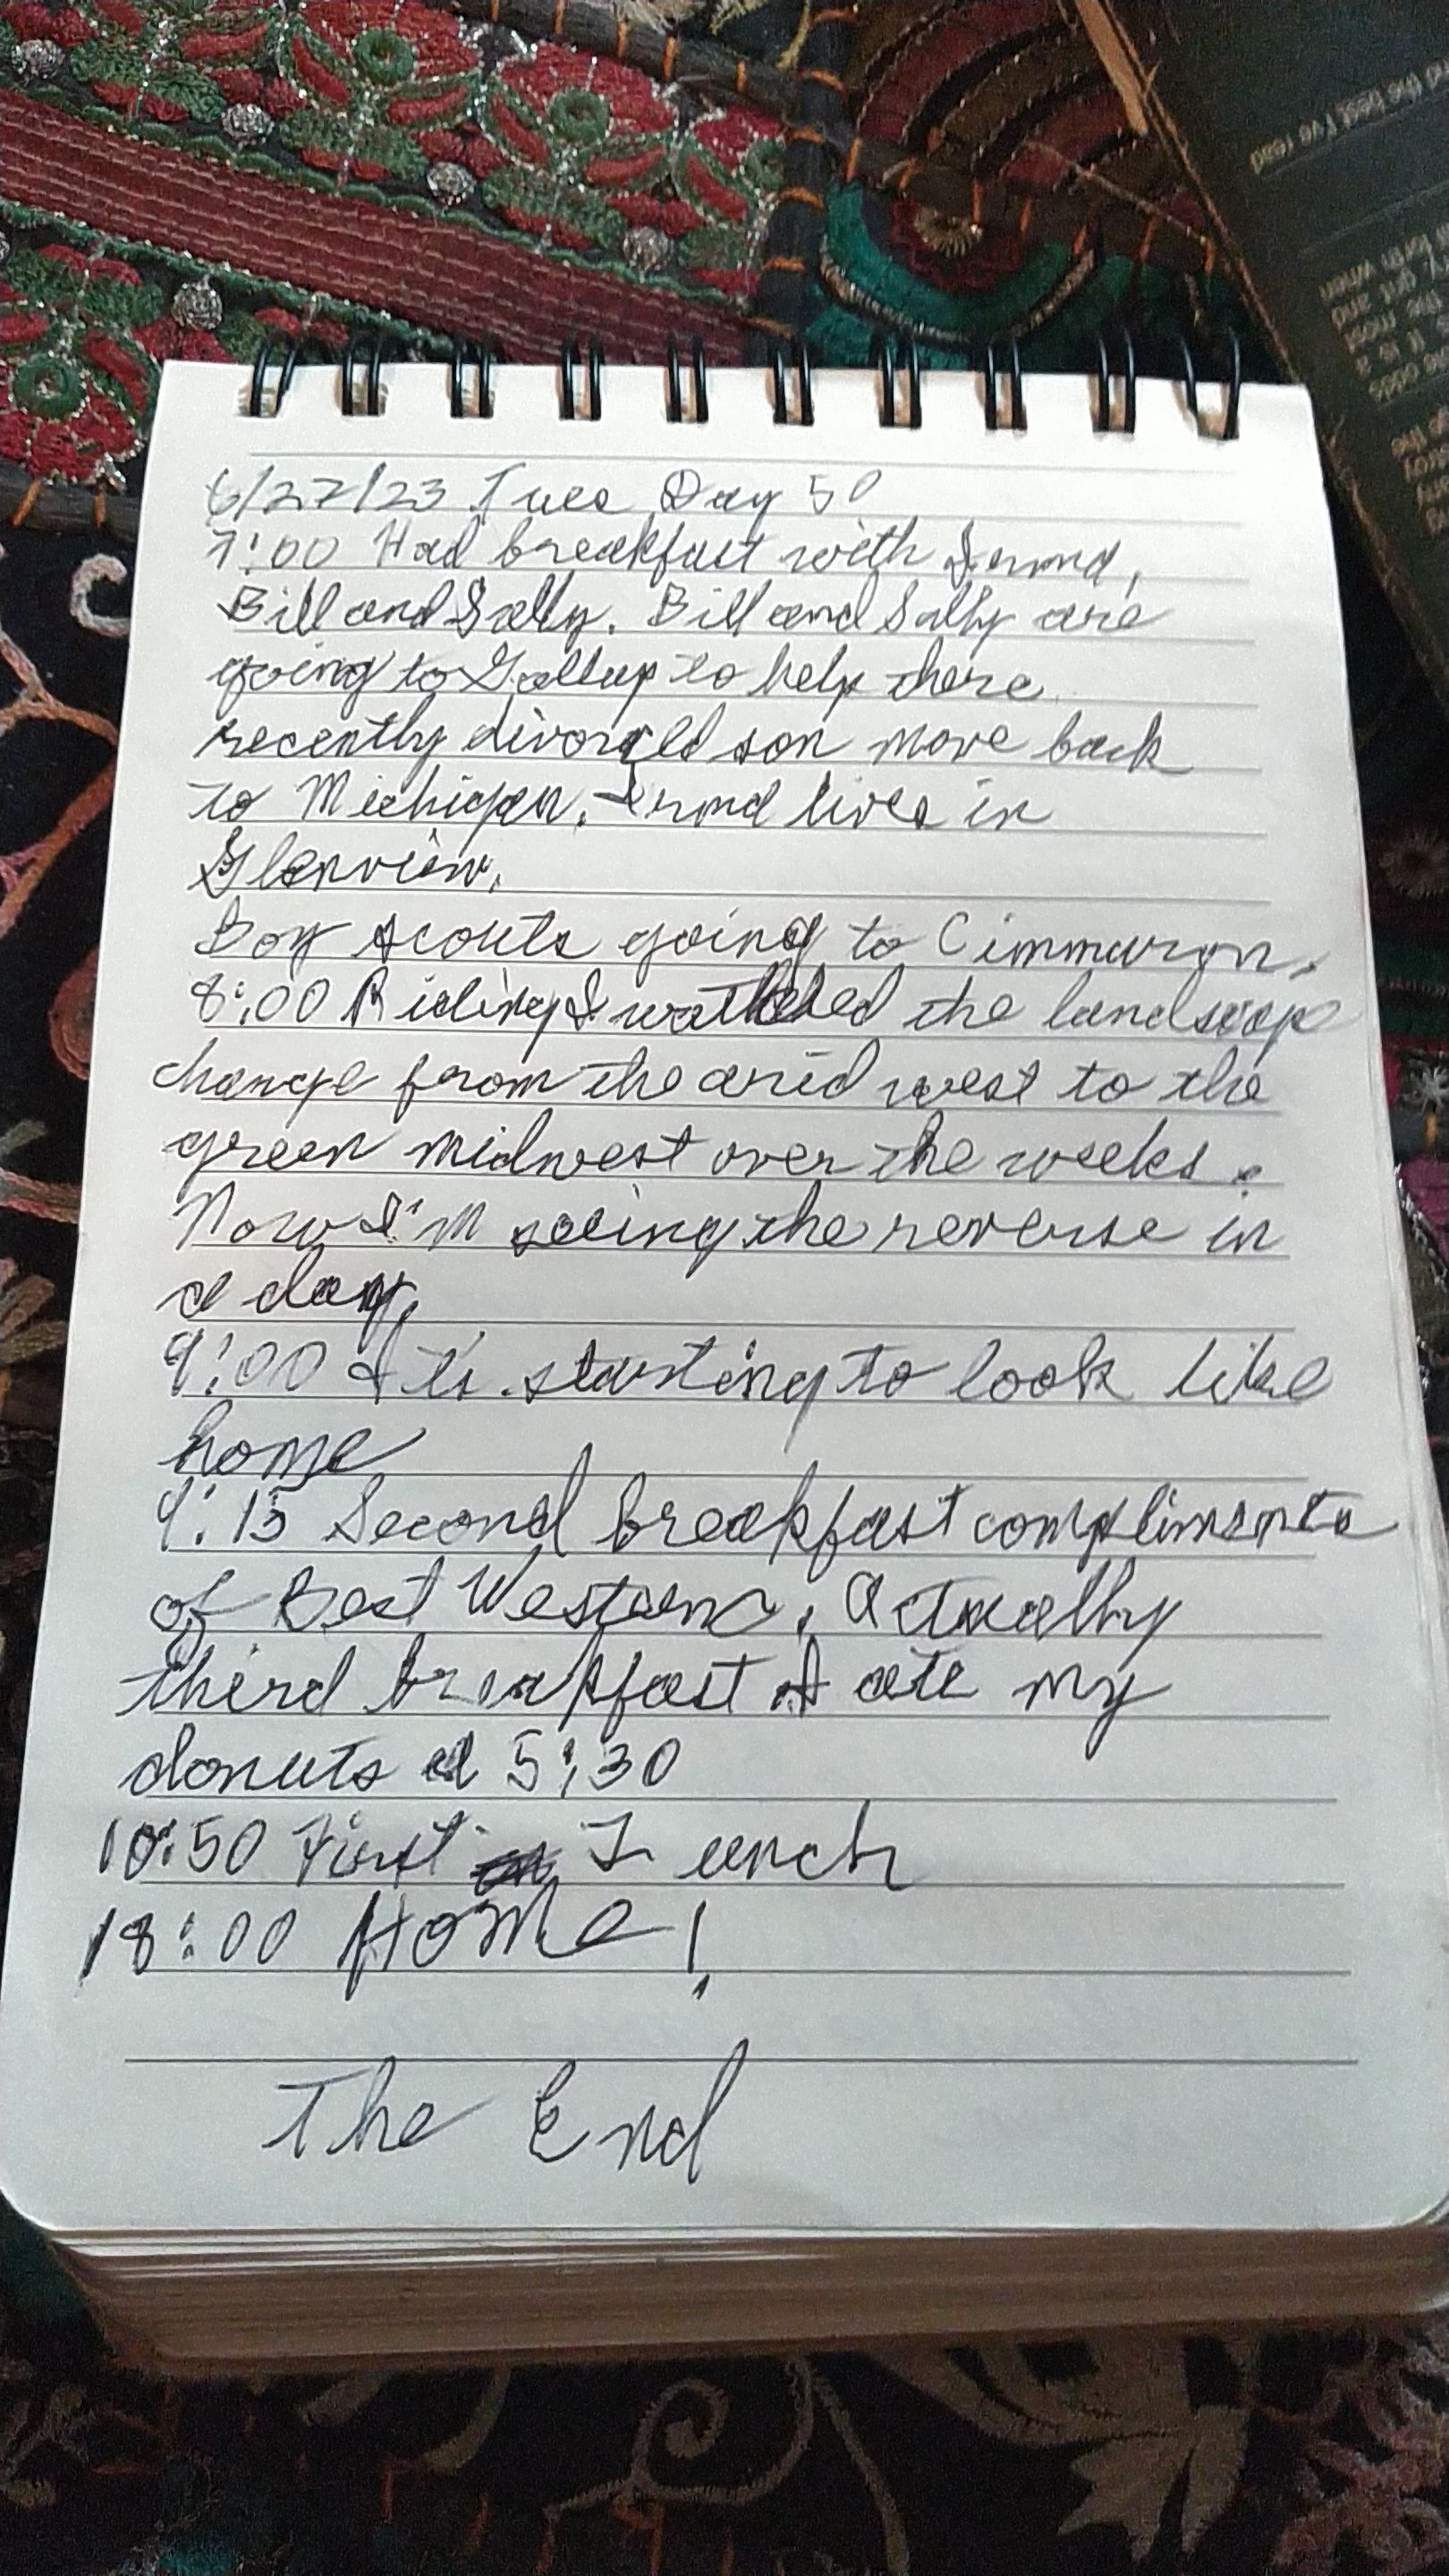 6/27/23 Tues Day 50
7:00 Had breakfast with
Bill and Sally. Bill and Sally are
going to Gallup to help there
recently divorced son move back
to Michigan. lives in
Glenview.
Boy scouts going to Cimmaron.
8:00 Riding I watched the landscape
change from the arid west to the
green midwest over the weeks.
Now I'm seeing the reverse in
a day.
9:00 It's starting to look like
home
9:15 Second breakfast compliments
of Best Western. Actually
third breakfast I ate my
donuts at 5:30
10:50 First Lunch
18:00 Home!
The End
nd the best I've read